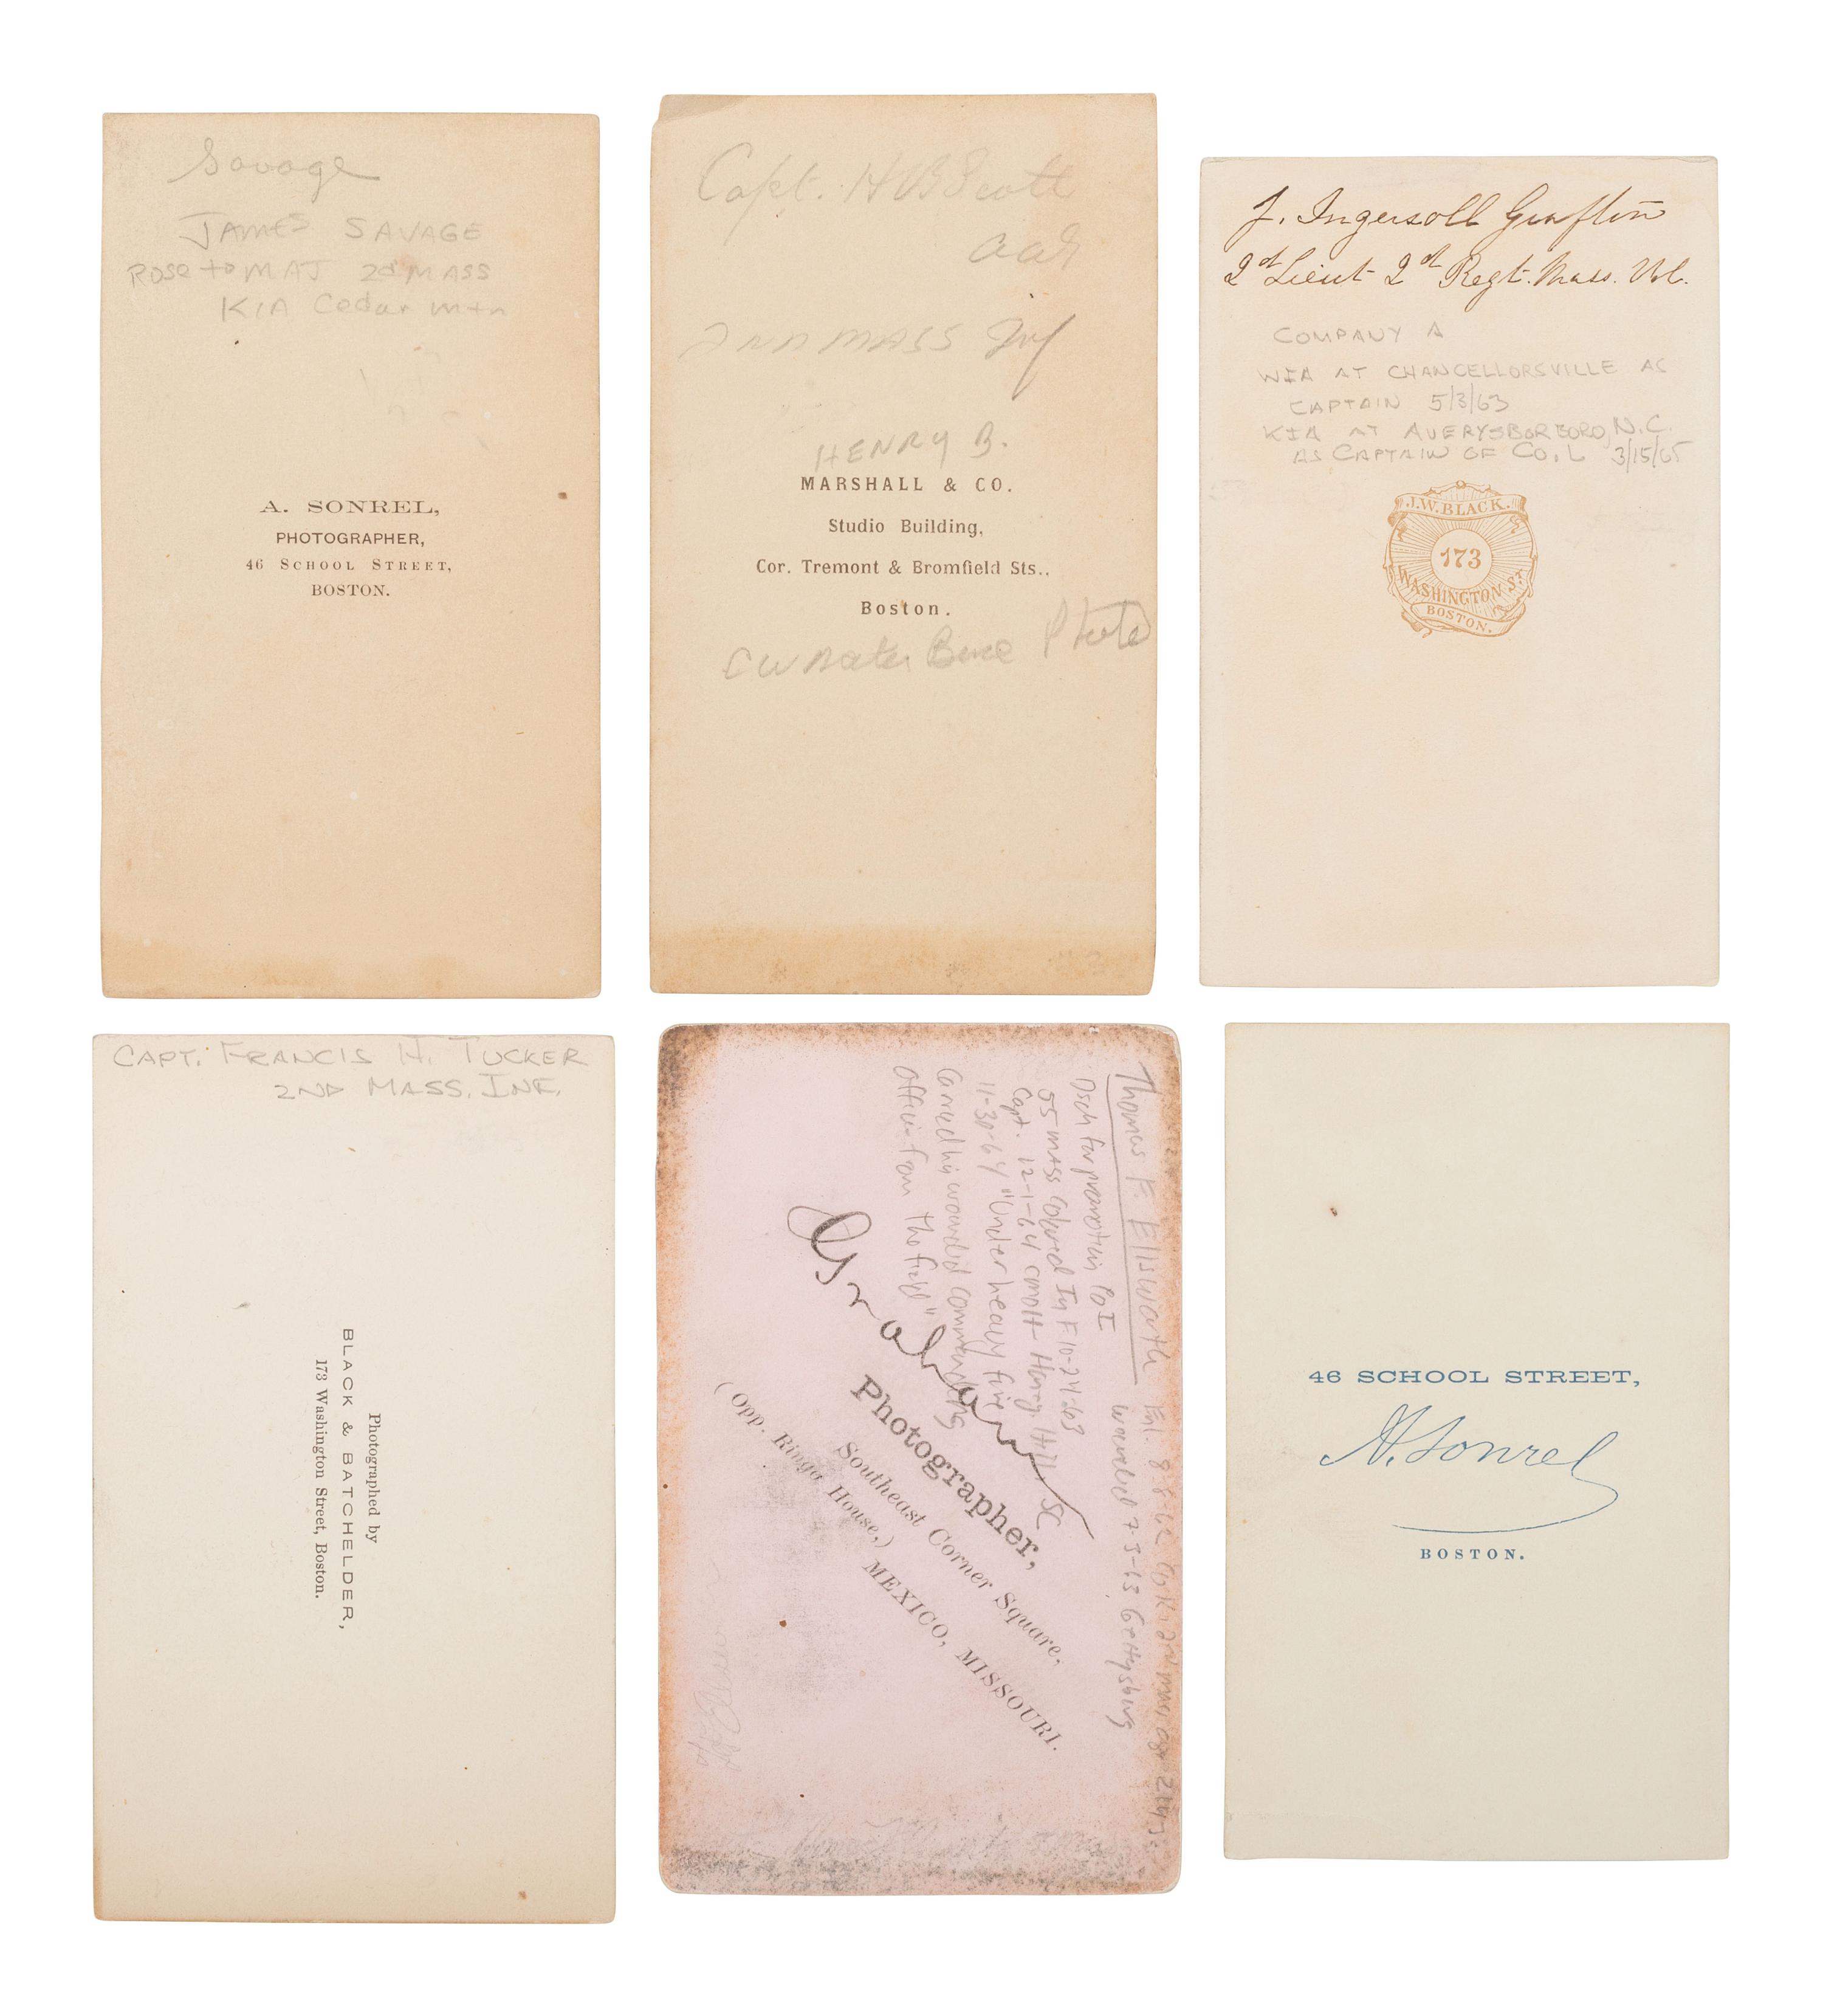 Savage
JAMES SAVAGE
ROSE to MAJ 2d MASS
KIA Cedar Mtn
A. SONREL,
PHOTOGRAPHER,
46 SCHOOL STREET,
BOSTON.
Capt. H B Scott
MASS Inf
HENRY B.
MARSHALL & CO.
Studio Building,
Cor. Tremont & Bromfield Sts.,
Boston.
Photo
J. Ingersoll Grafton
2d Lieut 2d Regt. Mass. Vol.
COMPANY A
WIA AT CHANCELLORSVILLE AS
CAPTAIN 5/3/63
KIA AT AVERYSBORBORO, N.C.
AS CAPTAIN OF CO. L 3/15/65
J.W. BLACK.
173
WASHINGTON ST.
BOSTON.
CAPT. FRANCIS H. TUCKER
2ND MASS. INF.
Photographed by
BLACK & BATCHELDER,
173 Washington Street, Boston.
Thomas F. Ellsworth
wounded 7-3-63 Gettysburg
Dsch for promotion
55 Mass Colored In F 10-24-63
Capt. 12-1-64 CMOH - Honey Hill SC
11-30-64 "Under heavy fire
Carried his wounded commanding
officer from the field"
Graham
Photographer,
Southeast Corner Square,
(Opp. Ringo House,) MEXICO, MISSOURI.
46 SCHOOL STREET,
A. Sonrel
BOSTON.